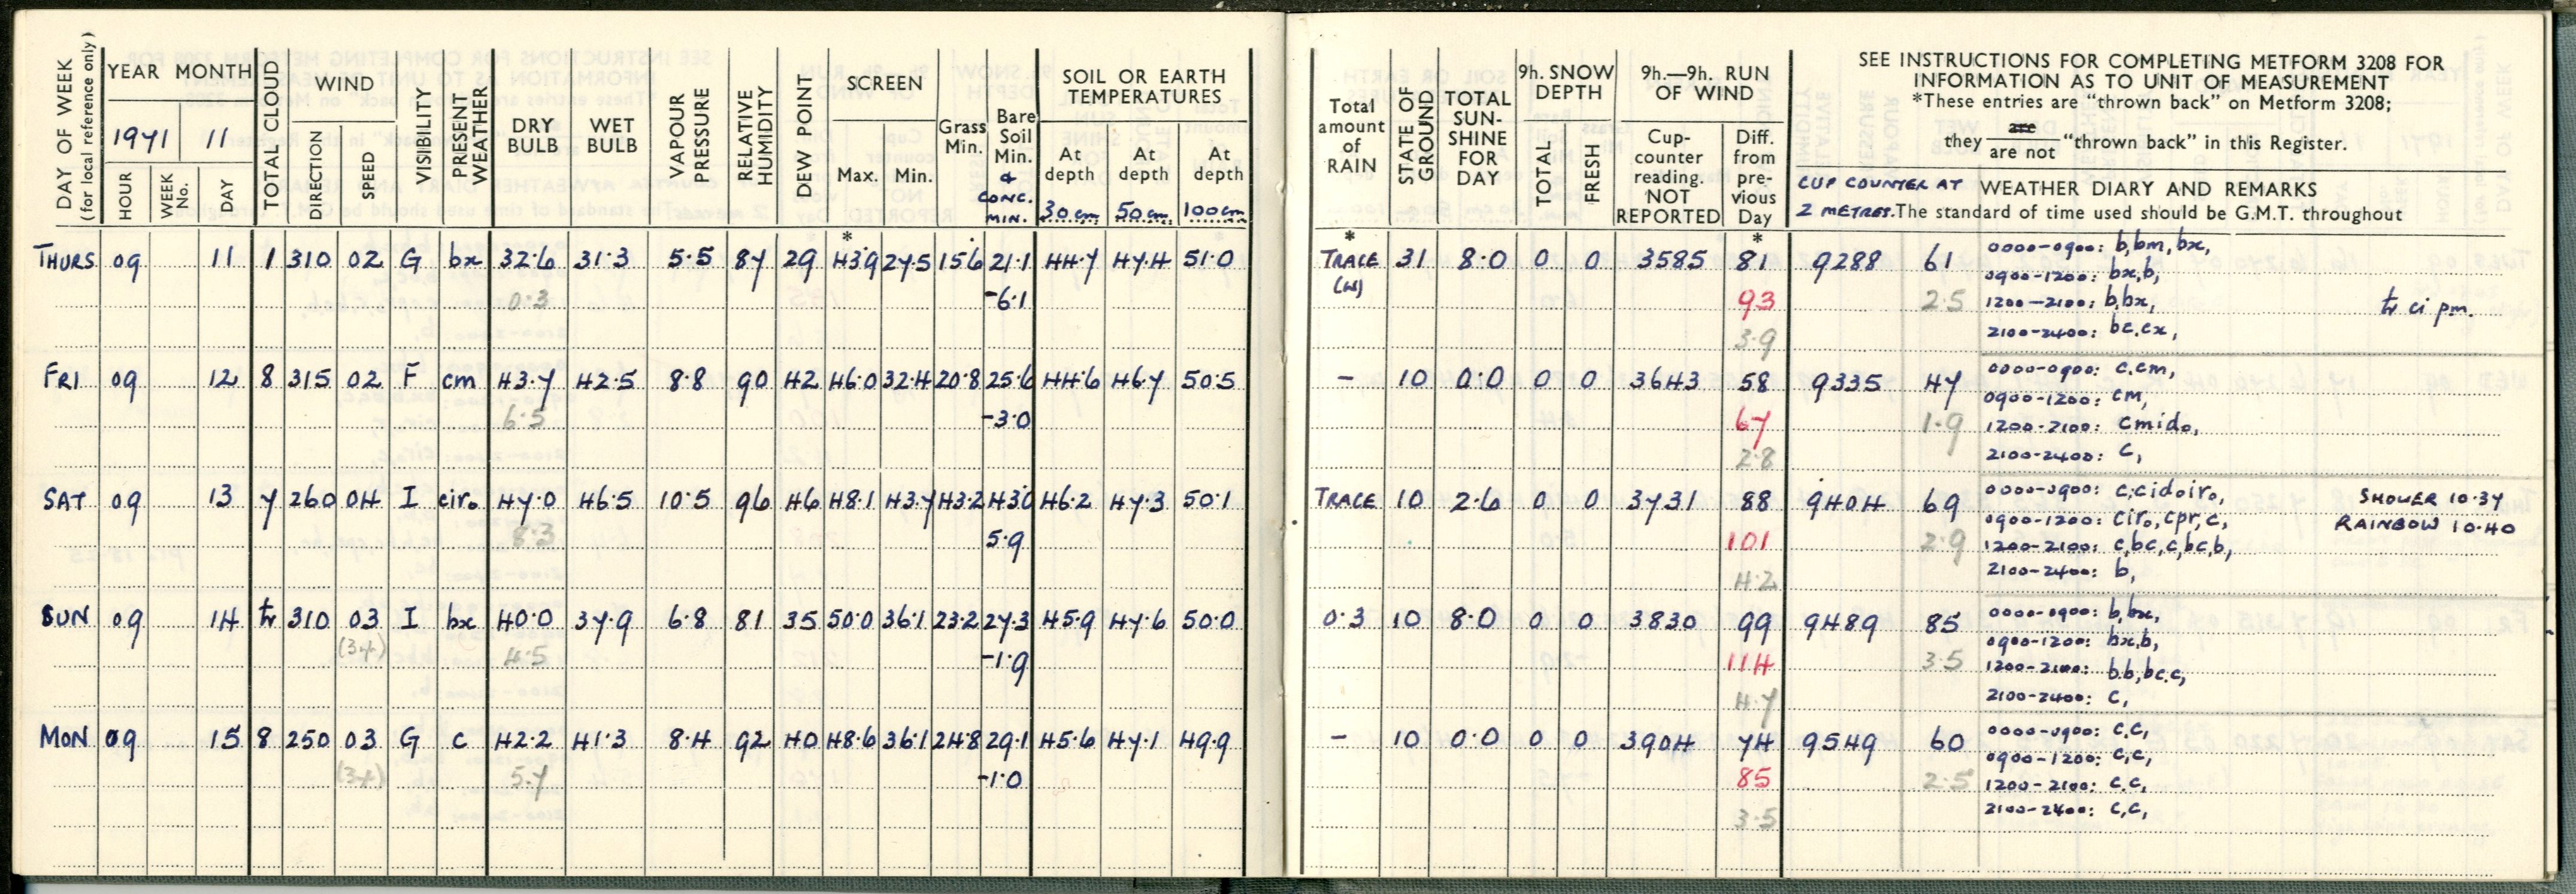 DAY OF WEEK (for local reference only)
YEAR MONTH
1971 11
HOUR WEEK No. DAY
TOTAL CLOUD
WIND
DIRECTION SPEED
VISIBILITY
PRESENT WEATHER
DRY BULB
WET BULB
VAPOUR PRESSURE
RELATIVE HUMIDITY
DEW POINT
SCREEN
Max. Min.
Grass Min.
Bare Soil Min. & CONC. MIN.
SOIL OR EARTH TEMPERATURES
At depth 30 cm
At depth 50 cm
At depth 100 cm
THURS 09 11 1 310 02 G bx 32.6 31.3 5.5 87 29 43.9 27.5 15.6 21.1 44.7 47.4 51.0
0.3 -6.1
FRI 09 12 8 315 02 F cm 43.7 42.5 8.8 90 42 46.0 32.4 20.8 25.6 44.6 46.7 50.5
6.5 -3.0
SAT 09 13 7 260 04 I ciro 47.0 46.5 10.5 96 46 48.1 43.7 43.2 43.0 46.2 47.3 50.1
8.3 5.9
SUN 09 14 tr 310 03 I bx 40.0 37.9 6.8 81 35 50.0 36.1 23.2 27.3 45.9 47.6 50.0
(3+) 4.5 -1.9
MON 09 15 8 250 03 G c 42.2 41.3 8.4 92 40 48.6 36.1 24.8 29.1 45.6 47.1 49.9
(3+) 5.7 -1.0
Total amount of RAIN
STATE OF GROUND
TOTAL SUN-SHINE FOR DAY
9h. SNOW DEPTH
TOTAL FRESH
9h.—9h. RUN OF WIND
Cup-counter reading. NOT REPORTED
Diff. from pre-vious Day
SEE INSTRUCTIONS FOR COMPLETING METFORM 3208 FOR
INFORMATION AS TO UNIT OF MEASUREMENT
*These entries are "thrown back" on Metform 3208;
they are / are not "thrown back" in this Register.
CUP COUNTER AT 2 METRES.
WEATHER DIARY AND REMARKS
The standard of time used should be G.M.T. throughout
TRACE (W) 31 8.0 0 0 3585 81 9288 61 0000-0900: b,bm,bx,
0900-1200: bx,b,
93 2.5 1200-2100: b,bx, tr ci pm.
3.9 2100-2400: bc.cx,
- 10 0.0 0 0 3643 58 9335 47 0000-0900: c.cm,
0900-1200: cm,
67 1.9 1200-2100: cmido,
2.8 2100-2400: c,
TRACE 10 2.6 0 0 3731 88 9404 69 0000-0900: c,cidoiro, SHOWER 10.37
0900-1200: ciro,cpr,c, RAINBOW 10.40
101 2.9 1200-2100: c,bc,c,bc,b,
4.2 2100-2400: b,
0.3 10 8.0 0 0 3830 99 9489 85 0000-0900: b,bx,
0900-1200: bx,b,
114 3.5 1200-2100: b.b,bc.c,
4.7 2100-2400: c,
- 10 0.0 0 0 3904 74 9549 60 0000-0900: c.c,
0900-1200: c,c,
85 2.5 1200-2100: c.c,
3.5 2100-2400: c,c,